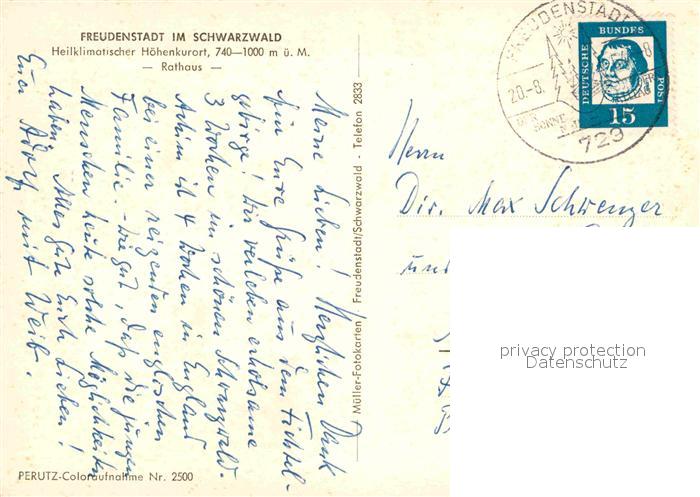 FREUDENSTADT IM SCHWARZWALD
Heilklimatischer Höhenkurort, 740—1000 m ü. M.
— Rathaus —
Meine Lieben! Herzlichen Dank
für Eure Grüße aus dem Fichtel-
gebirge! Wir verleben erholsame
3 Wochen im schönen Schwarzwald.
Achim ist 4 Wochen in England
bei einer reizenden englischen
Familie. - Wie gut, daß die jungen
Menschen heute solche Möglichkeiten
haben. Alles Gute Euch Lieben!
Euer Adolf mit Weib.
PERUTZ-Coloraufnahme Nr. 2500
Müller-Fotokarten Freudenstadt/Schwarzwald - Telefon 2833
FREUDENSTADT
20.-8.
729
DEUTSCHE
BUNDES
POST
15
Herrn
Dir. Max Schwenzer
und
privacy protection
Datenschutz